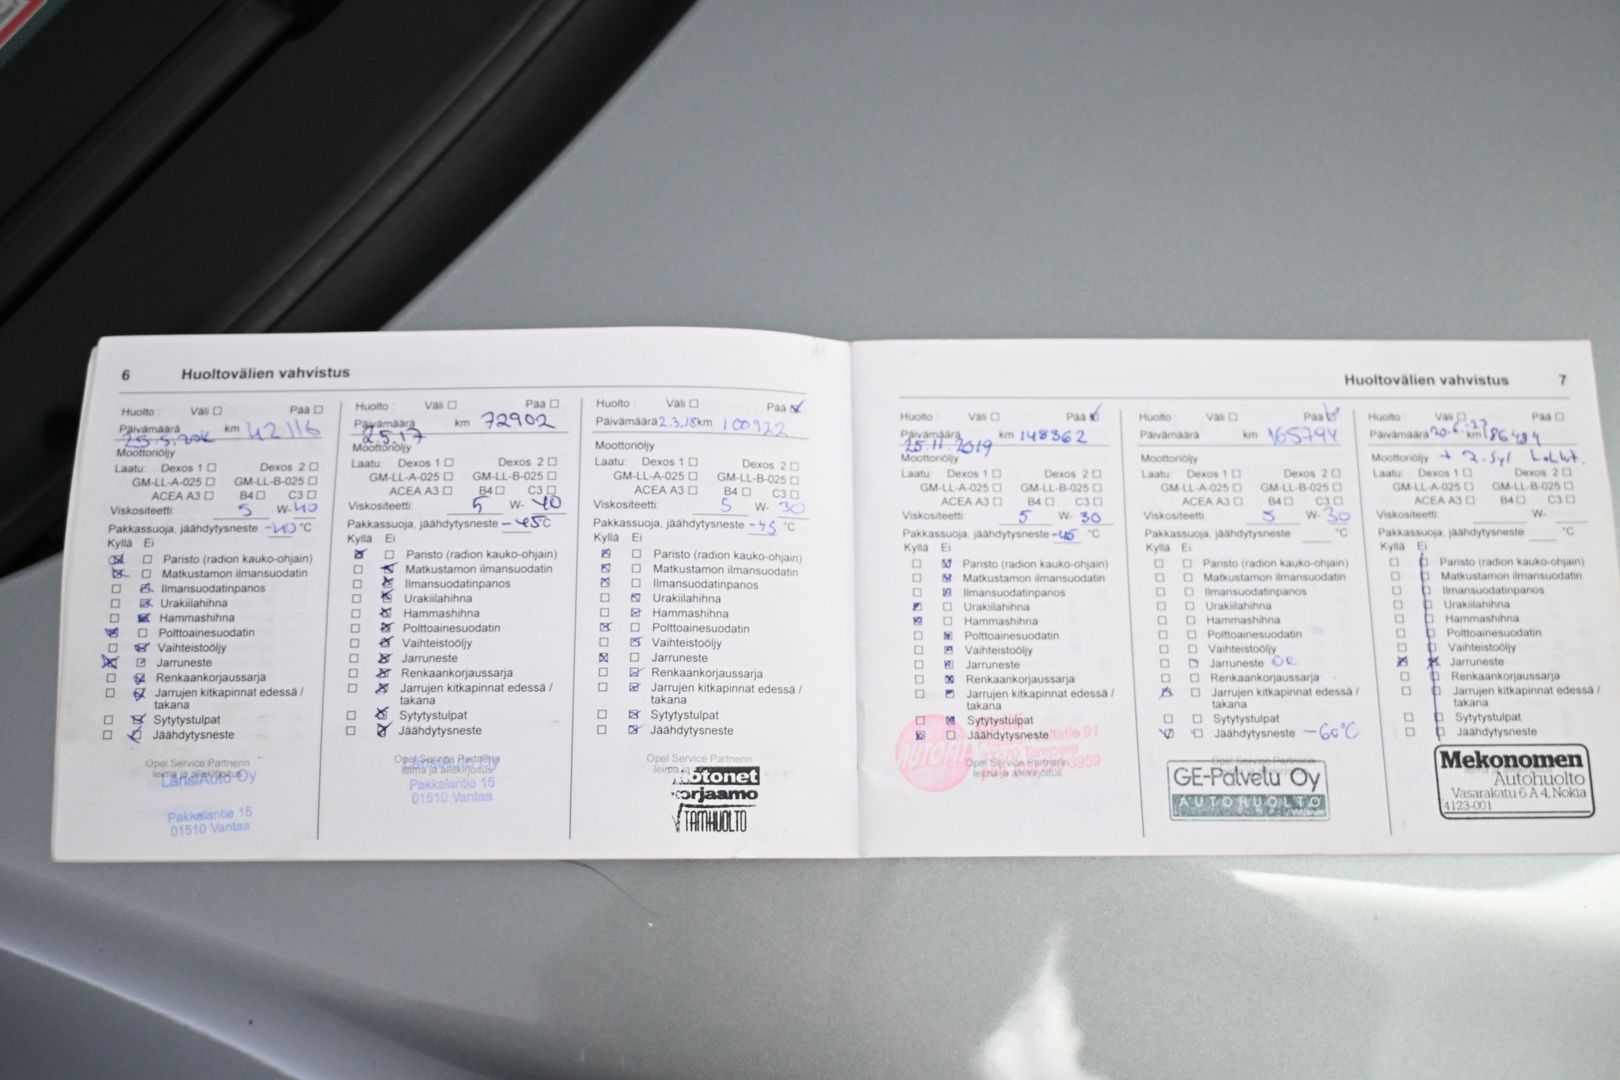 6 Huoltovälien vahvistus
Huolto : Väli Pää
Päivämäärä km 42116
Moottoriöljy
Laatu: Dexos 1 Dexos 2
GM-LL-A-025 GM-LL-B-025
ACEA A3 B4 C3
Viskositeetti: 5 W-40
Pakkassuoja, jäähdytysneste -40 °C
Kyllä Ei
Paristo (radion kauko-ohjain)
Matkustamon ilmansuodatin
Ilmansuodatinpanos
Urakiilahihna
Hammashihna
Polttoainesuodatin
Vaihteistoöljy
Jarruneste
Renkaankorjaussarja
Jarrujen kitkapinnat edessä /
takana
Sytytystulpat
Jäähdytysneste
Opel Service Partnerin
leima ja allekirjoitus
LänsiAuto Oy
Pakkalantie 15
01510 Vantaa
Huolto : Väli Pää
Päivämäärä 2.5.17 km 72902
Moottoriöljy
Laatu: Dexos 1 Dexos 2
GM-LL-A-025 GM-LL-B-025
ACEA A3 B4 C3
Viskositeetti: 5 W-40
Pakkassuoja, jäähdytysneste -45°C
Kyllä Ei
Paristo (radion kauko-ohjain)
Matkustamon ilmansuodatin
Ilmansuodatinpanos
Urakiilahihna
Hammashihna
Polttoainesuodatin
Vaihteistoöljy
Jarruneste
Renkaankorjaussarja
Jarrujen kitkapinnat edessä /
takana
Sytytystulpat
Jäähdytysneste
Opel Service Partnerin
leima ja allekirjoitus
Pakkalantie 15
01510 Vantaa
Huolto : Väli Pää
Päivämäärä 2.3.18 km 100922
Moottoriöljy
Laatu: Dexos 1 Dexos 2
GM-LL-A-025 GM-LL-B-025
ACEA A3 B4 C3
Viskositeetti: 5 W-30
Pakkassuoja, jäähdytysneste -45 °C
Kyllä Ei
Paristo (radion kauko-ohjain)
Matkustamon ilmansuodatin
Ilmansuodatinpanos
Urakiilahihna
Hammashihna
Polttoainesuodatin
Vaihteistoöljy
Jarruneste
Renkaankorjaussarja
Jarrujen kitkapinnat edessä /
takana
Sytytystulpat
Jäähdytysneste
Opel Service Partnerin
leima ja allekirjoitus
TAMHUOLTO
Huoltovälien vahvistus 7
Huolto : Väli Pää
Päivämäärä 25.11.2019 km 148362
Moottoriöljy
Laatu: Dexos 1 Dexos 2
GM-LL-A-025 GM-LL-B-025
ACEA A3 B4 C3
Viskositeetti: 5 W- 30
Pakkassuoja, jäähdytysneste -45 °C
Kyllä Ei
Paristo (radion kauko-ohjain)
Matkustamon ilmansuodatin
Ilmansuodatinpanos
Urakiilahihna
Hammashihna
Polttoainesuodatin
Vaihteistoöljy
Jarruneste
Renkaankorjaussarja
Jarrujen kitkapinnat edessä /
takana
Sytytystulpat
Jäähdytysneste
Opel Service Partnerin
leima ja allekirjoitus
AUTOFIT
33270 Tampere
Huolto : Väli Pää
Päivämäärä km 165794
Moottoriöljy
Laatu: Dexos 1 Dexos 2
GM-LL-A-025 GM-LL-B-025
ACEA A3 B4 C3
Viskositeetti: 5 W- 30
Pakkassuoja, jäähdytysneste °C
Kyllä Ei
Paristo (radion kauko-ohjain)
Matkustamon ilmansuodatin
Ilmansuodatinpanos
Urakiilahihna
Hammashihna
Polttoainesuodatin
Vaihteistoöljy
Jarruneste OK
Renkaankorjaussarja
Jarrujen kitkapinnat edessä /
takana
Sytytystulpat
Jäähdytysneste -60°C
Opel Service Partnerin
GE-Palvelu Oy
AUTOHUOLTO
Ylöjärvi
Huolto : Väli Pää
Päivämäärä km 186484
Moottoriöljy
Laatu: Dexos 1 Dexos 2
GM-LL-A-025 GM-LL-B-025
ACEA A3 B4 C3
Viskositeetti: W-
Pakkassuoja, jäähdytysneste °C
Kyllä Ei
Paristo (radion kauko-ohjain)
Matkustamon ilmansuodatin
Ilmansuodatinpanos
Urakiilahihna
Hammashihna
Polttoainesuodatin
Vaihteistoöljy
Jarruneste
Renkaankorjaussarja
Jarrujen kitkapinnat edessä /
takana
Sytytystulpat
Jäähdytysneste
Mekonomen
Autohuolto
Vasarakatu 6 A 4, Nokia
4123-001